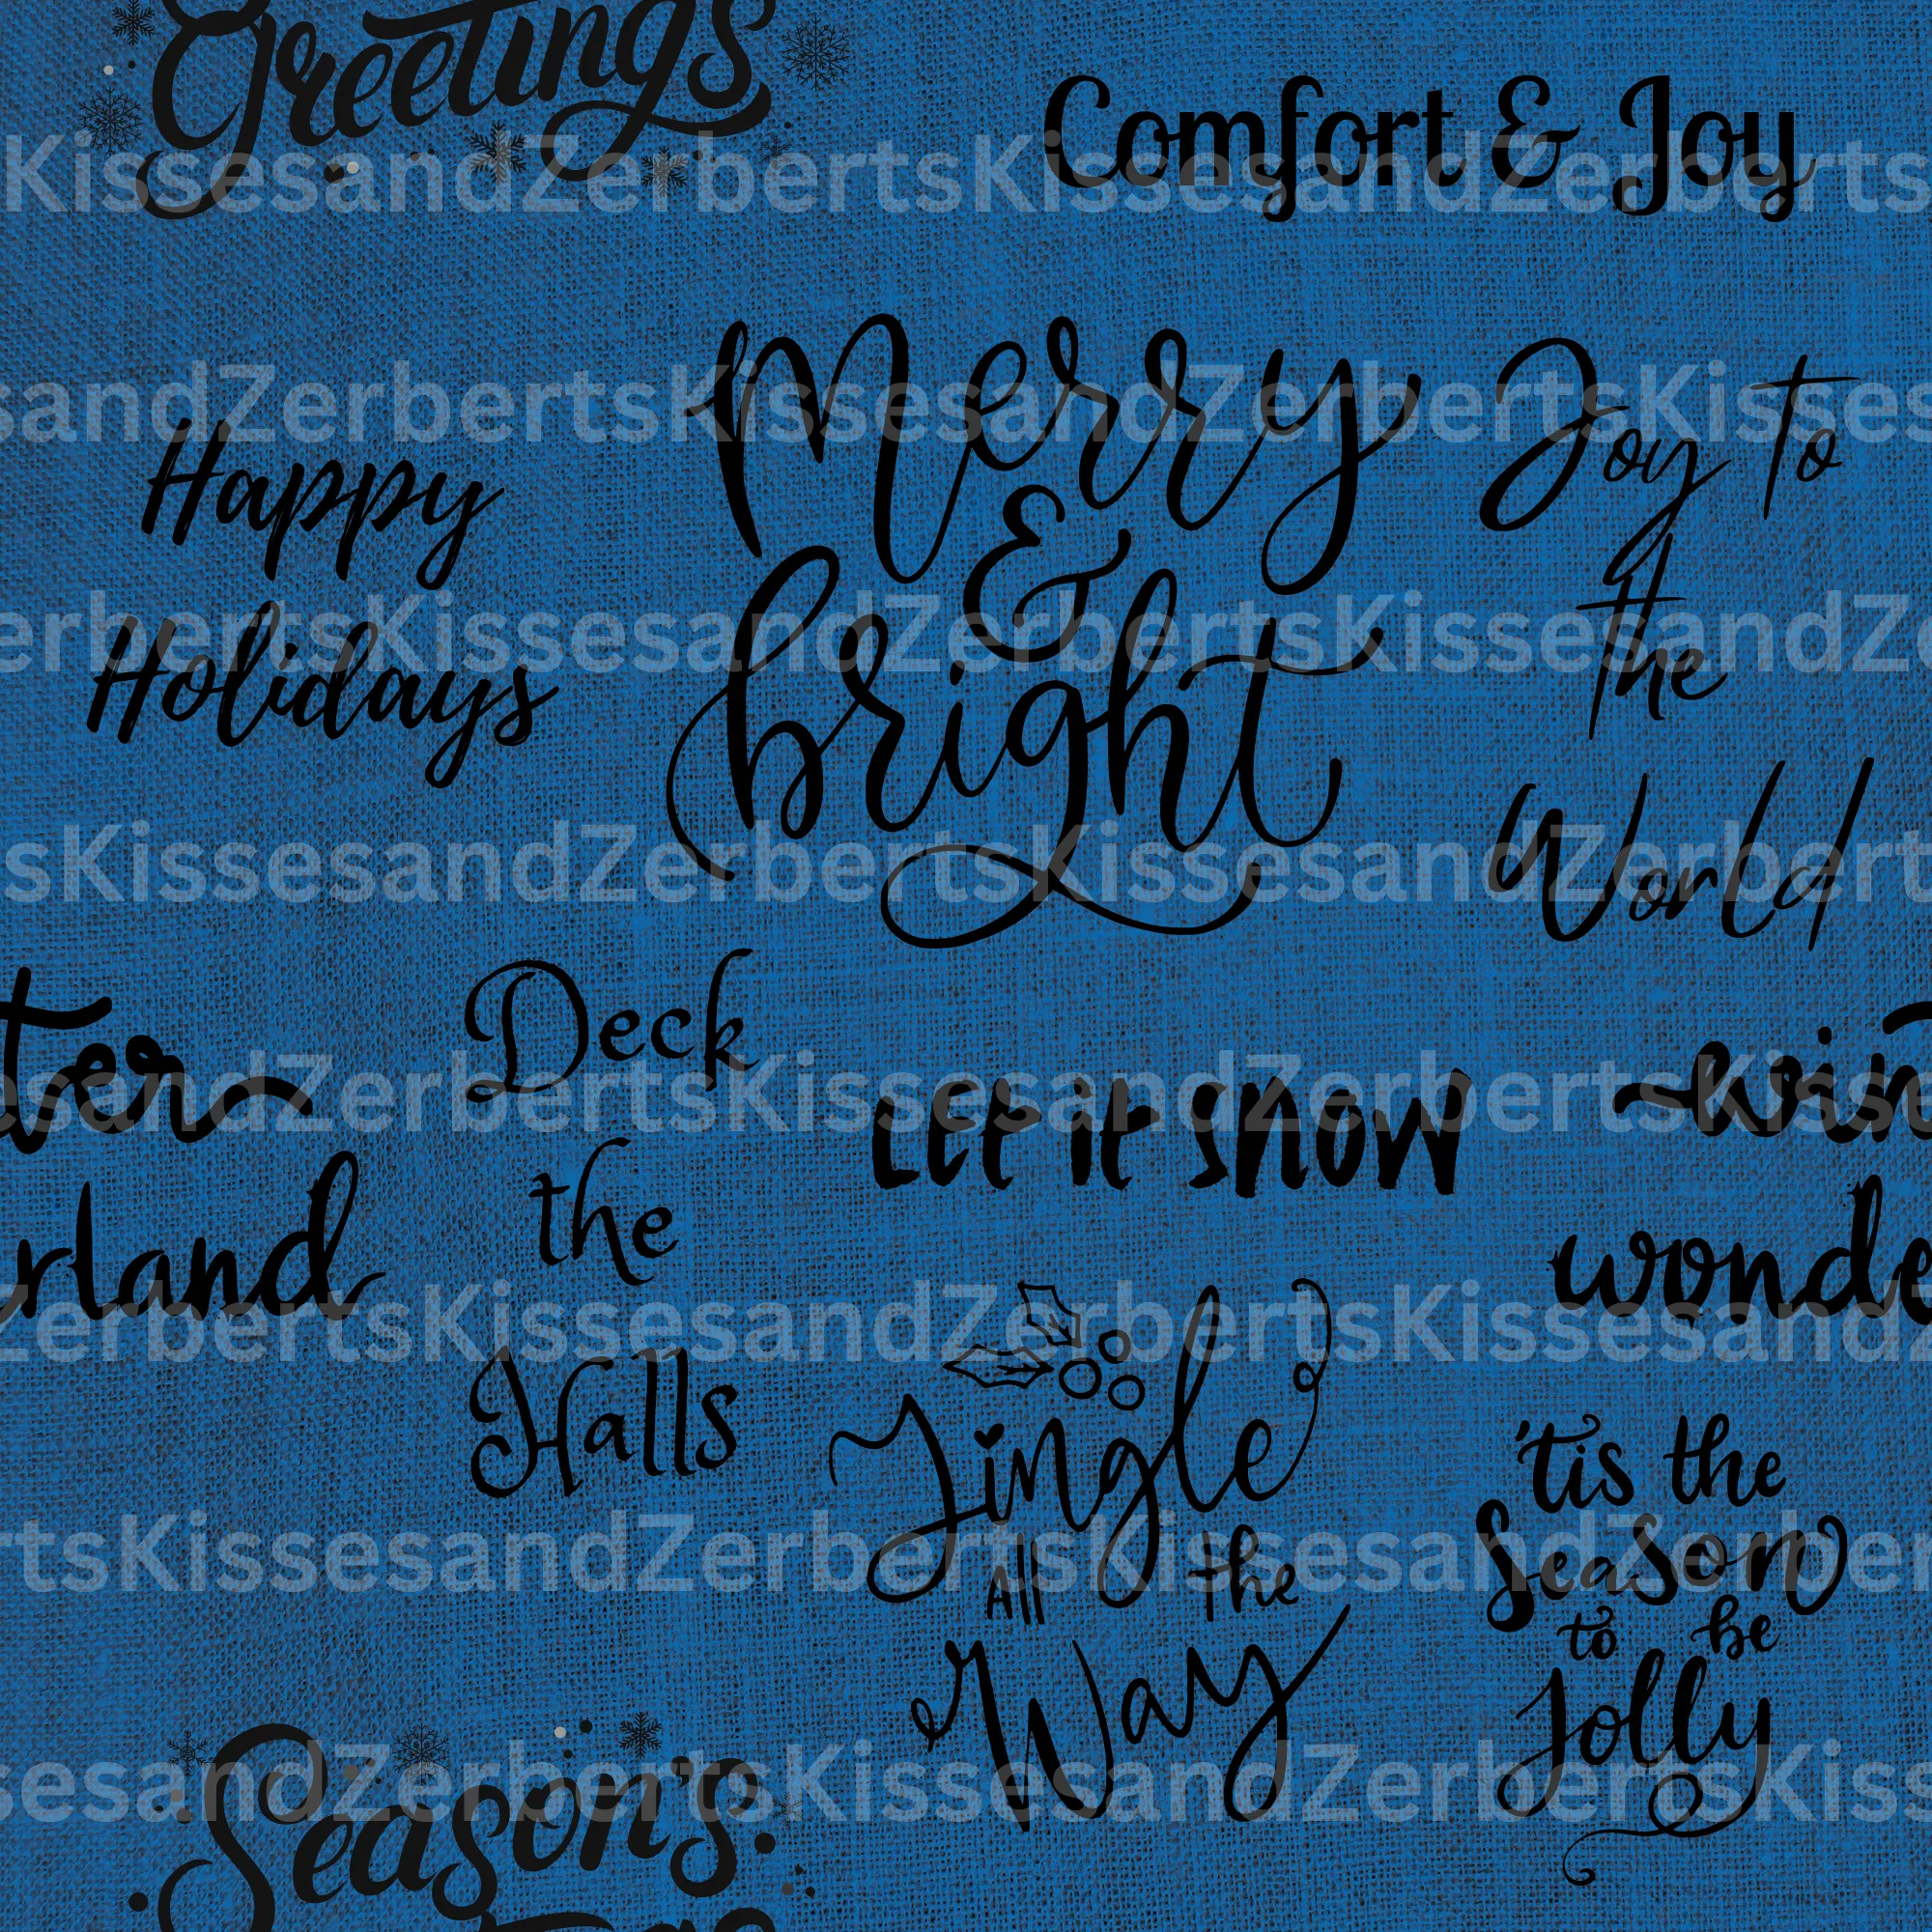 Greetings
Comfort & Joy
KissesandZerbertsKissesandZerberts
Merry
&
bright
Joy to
the
World
sandZerbertsKissesandZerbertsKisses
Happy
Holidays
erbertsKissesandZerbertsKissesandZ
sKissesandZerbertsKissesandZerbert
ter
rland
Deck
the
Halls
LET it SNOW
win
wonde
esandZerbertsKissesandZerbertsKisse
ZerbertsKissesandZerbertsKissesandZ
Jingle
All the
Way
'tis the
Season
to be
Jolly
rtsKissesandZerbertsKissesandZerber
Season's
sesandZerbertsKissesandZerbertsKiss